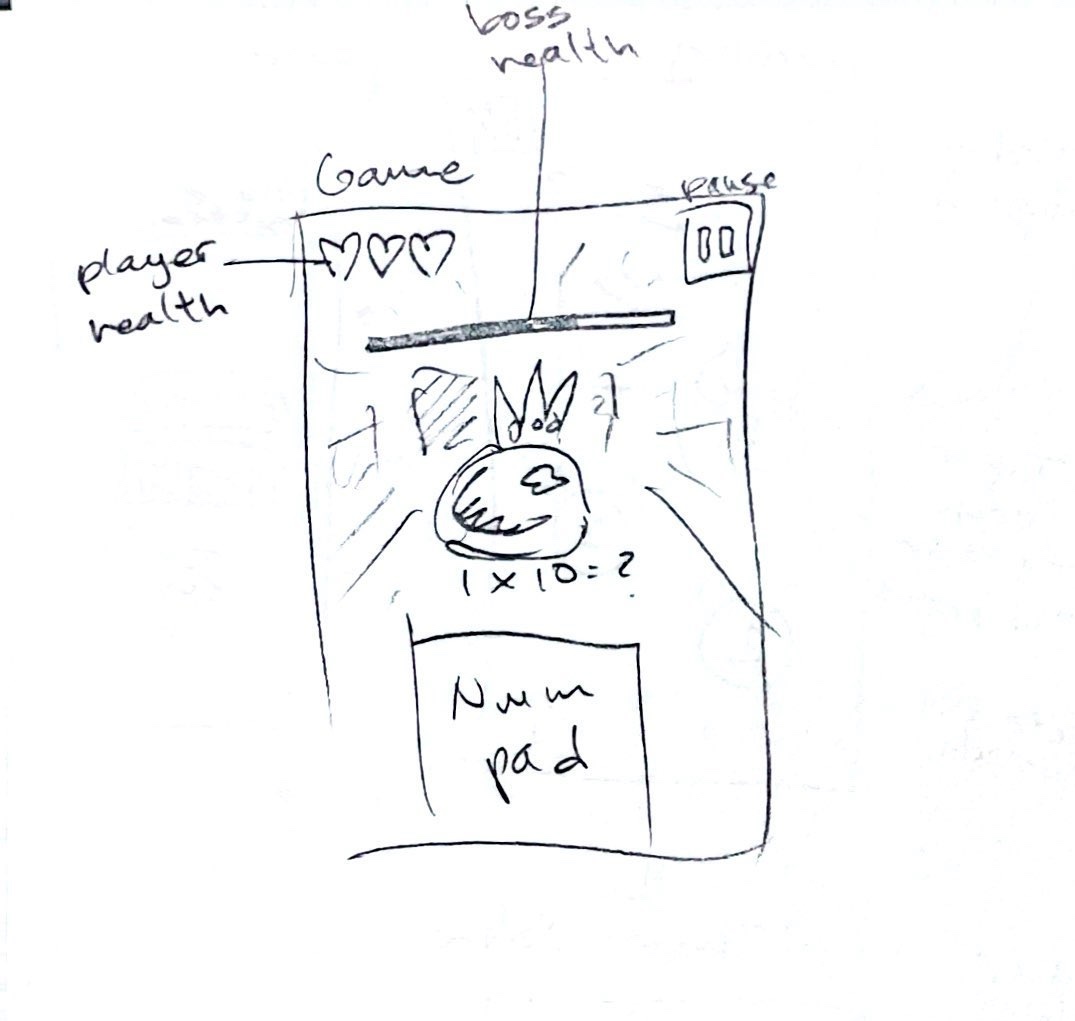 boss
health
Game
pause
player
health
1 x 10 = ?
Num
pad